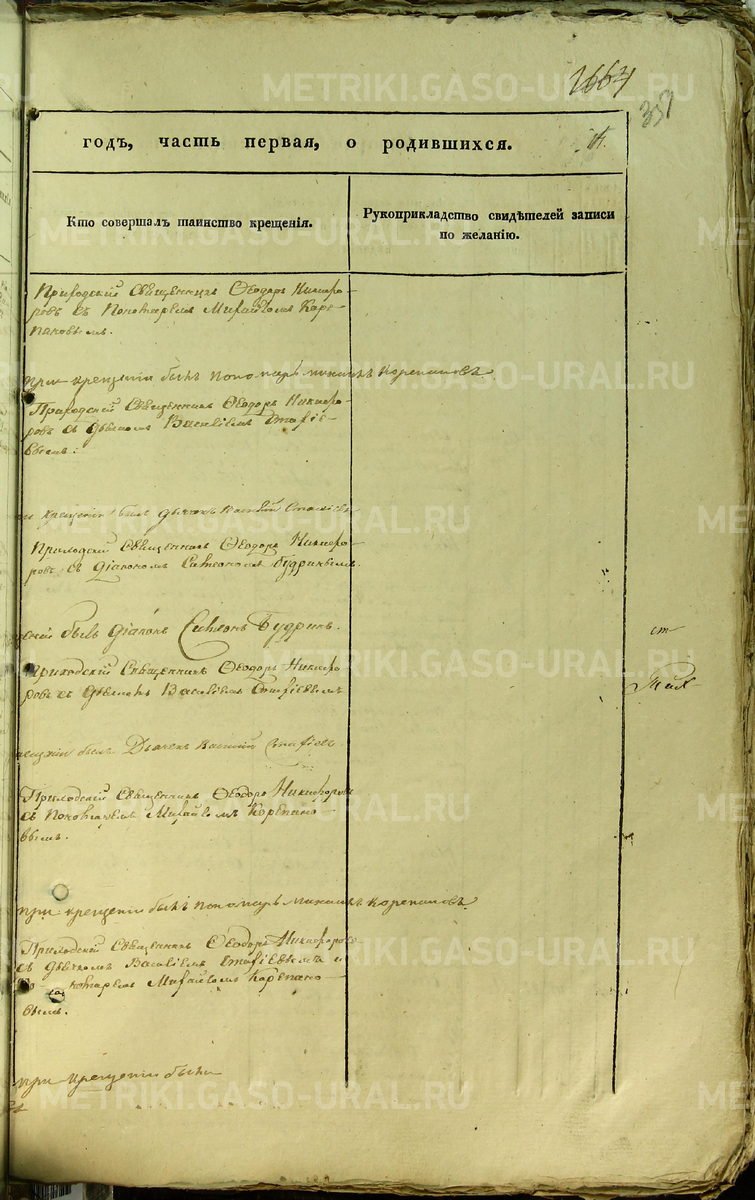 METRIKI.GASO-URAL.RU
годъ, часть первая, о родившихся.
Кто совершалъ таинство крещенія.
Рукоприкладство свидѣтелей записи
по желанію.
Приходскій Священникъ Ѳеодоръ Никифо-
ровъ съ Пономаремъ Михайломъ Коре-
пановымъ.
при крещеніи былъ пономарь михаилъ Корепановъ
Приходскій Священникъ Ѳеодоръ Никифо-
ровъ съ дьячкомъ Василіемъ
крещеніи былъ дьячекъ Василій
Приходскій Священникъ Ѳеодоръ Никифо-
ровъ съ діакономъ Симеономъ Будринымъ.
былъ діаконъ Симеонъ Будринъ.
Приходскій Священникъ Ѳеодоръ Никифо-
ровъ съ Василіемъ
былъ Дьячекъ Василій
Приходскій Священникъ Ѳеодоръ Никифоровъ
съ Пономаремъ Михайломъ Корепано-
вымъ.
при крещеніи былъ пономарь михаилъ Корепановъ
Приходскій Священникъ Ѳеодоръ Никифоровъ
съ дьячкомъ Василіемъ и
номаремъ Михайломъ Корепано-
вымъ.
при крещеніи были